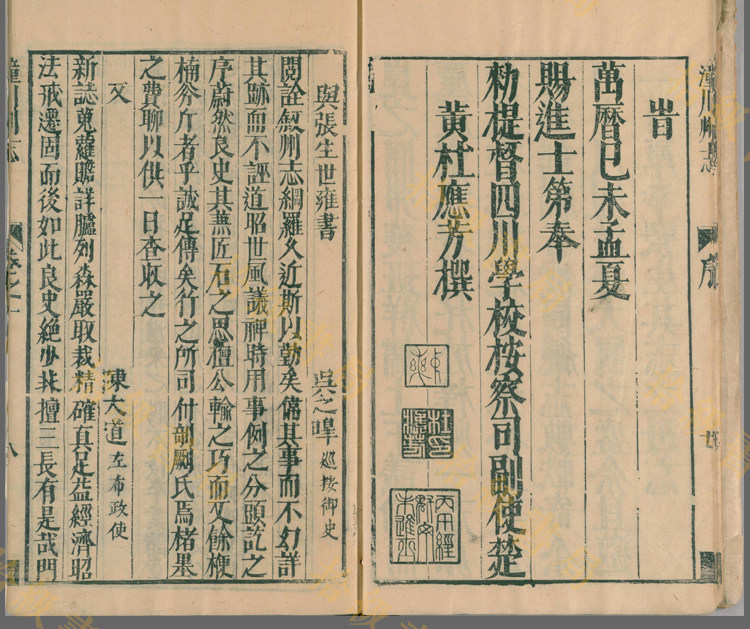 潼川州志 序
旹
萬曆已未孟夏
賜進士第奉
勑提督四川學校按察司副使楚
黃杜應芳撰
與張生世雍書 吳之皡 巡按御史
閱詮敘州志綱羅久近斯以勤矣僃其事而不幻詳
其跡而不誣道昭世風議裨時用事例之分題訖之
序蔚然良史其兼匠石之思檀公輸之巧而又餘楩
楠棼斤者乎誠足傳矣行之所司付剞劂氏焉楮墨
之費聊以供一日查收之
又 陳大道 左布政使
新誌蒐蘿贍詳臚列森嚴取裁精確真足益經濟昭
法戒遷固而後如此良史絕少非擅三長有是哉門
潼川州志 卷之一 八